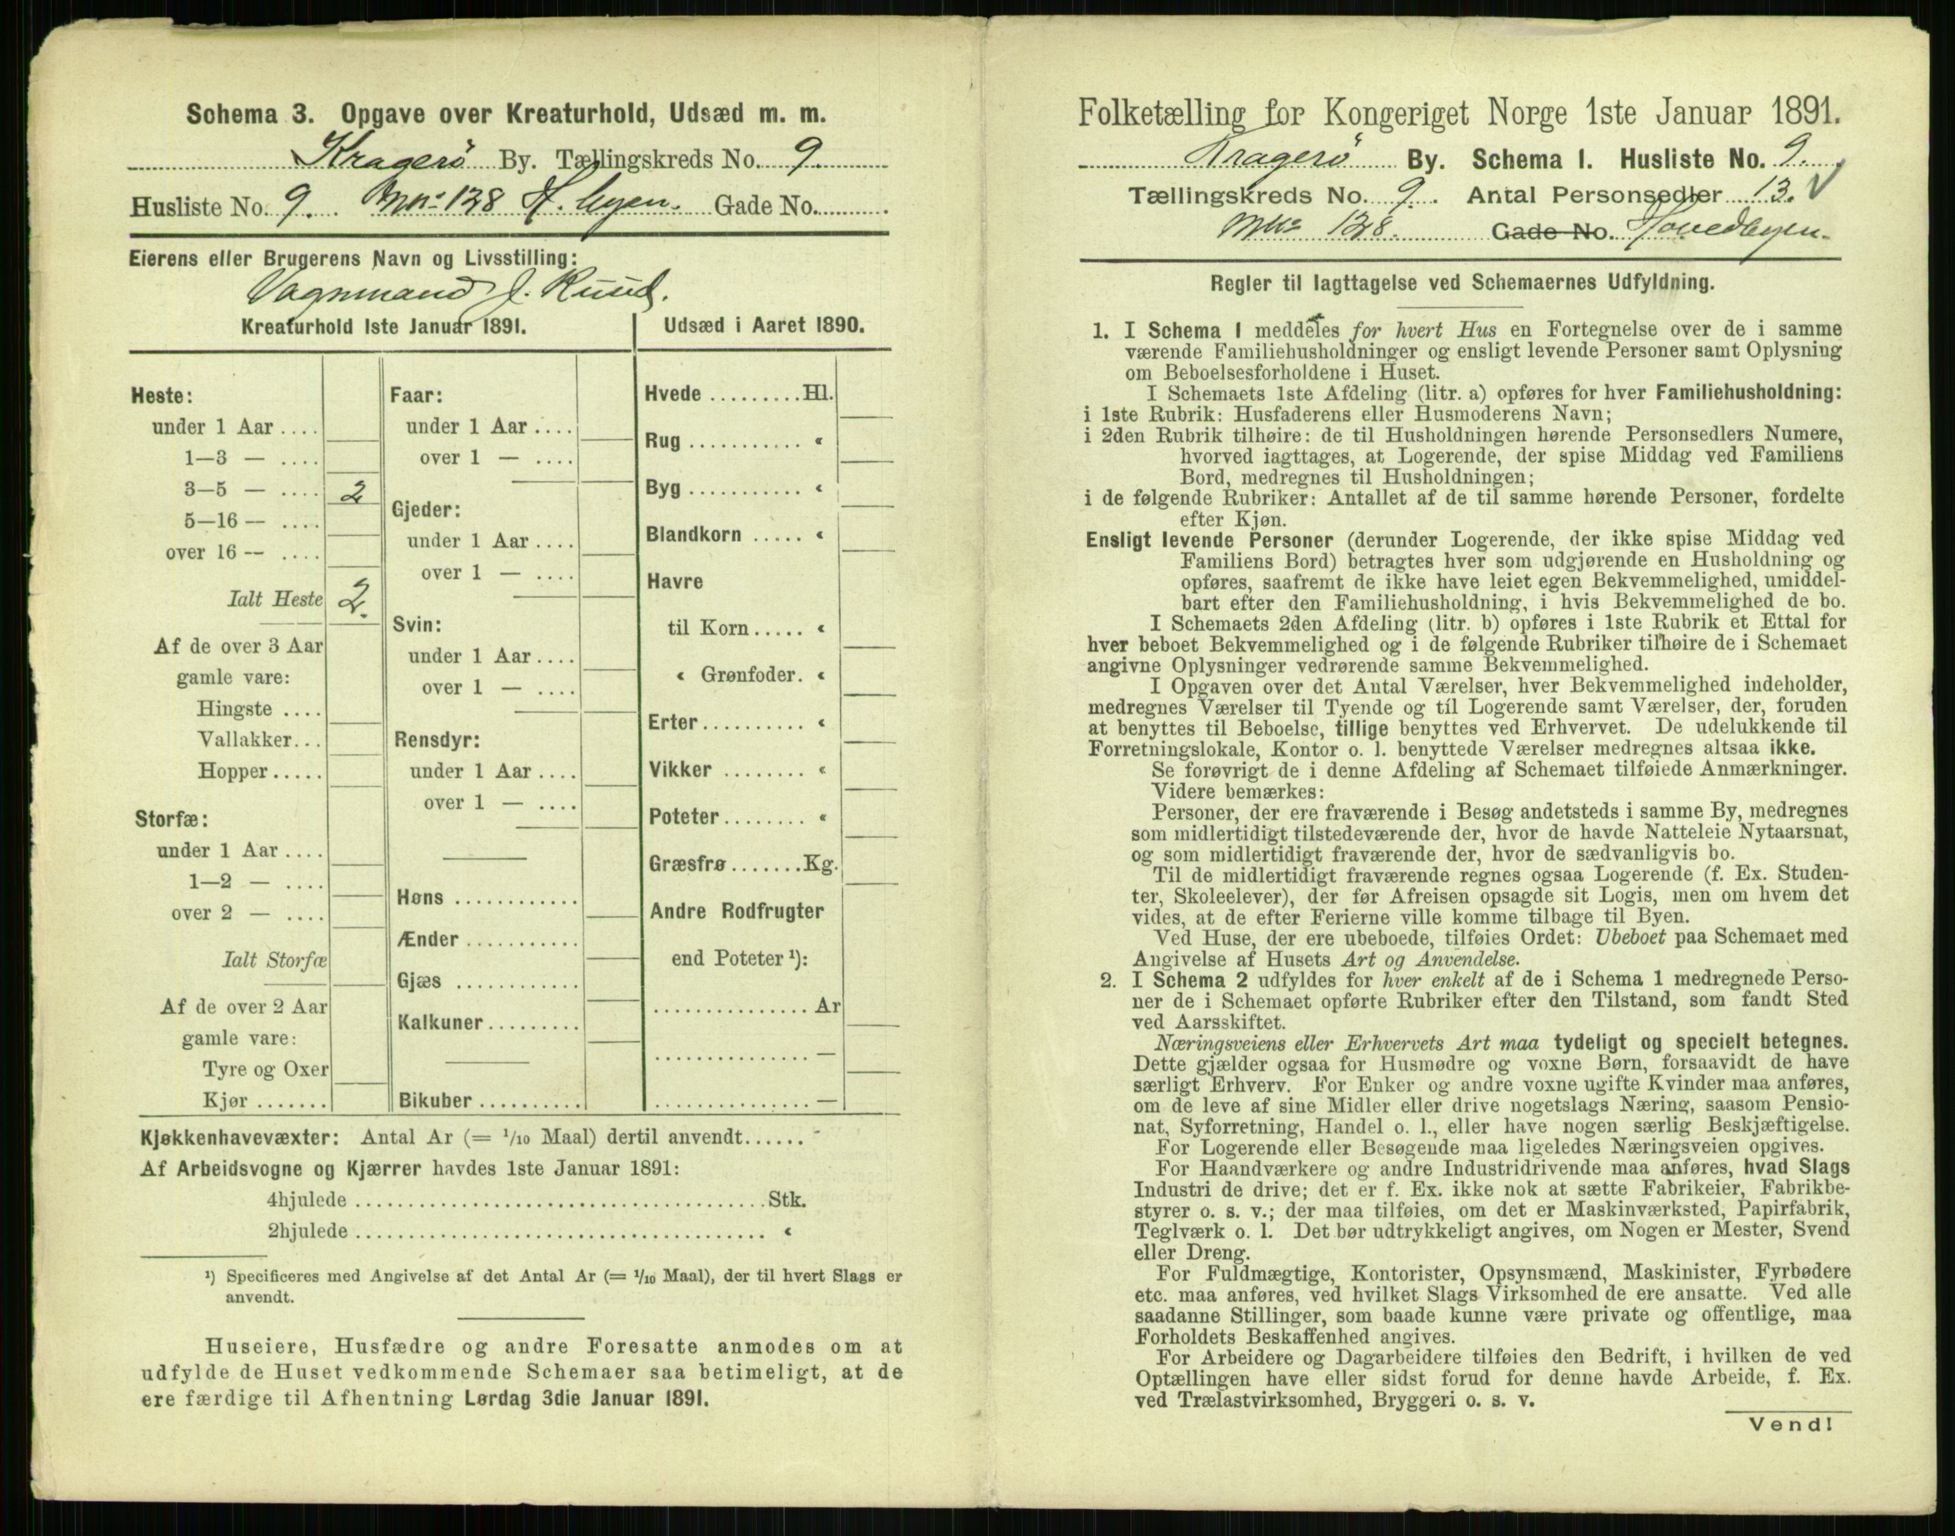 Schema 3. Opgave over Kreaturhold, Udsæd m. m.
Kragerö By. Tællingskreds No. 9.
Husliste No. 9. Mno 128 H. byen. Gade No.
Eierens eller Brugerens Navn og Livsstilling:
Vognmand J. Ruud.
Kreaturhold 1ste Januar 1891.
Heste:
under 1 Aar ....
1—3 — ....
3—5 — .... 2
5—16 — ....
over 16 — ....
Ialt Heste 2.
Af de over 3 Aar
gamle vare:
Hingste ....
Vallakker...
Hopper.....
Storfæ:
under 1 Aar ....
1—2 — ....
over 2 — ....
Ialt Storfæ
Af de over 2 Aar
gamle vare:
Tyre og Oxer
Kjør .......
Faar:
under 1 Aar ....
over 1 — ....
Gjeder:
under 1 Aar ....
over 1 — ....
Svin:
under 1 Aar ....
over 1 — ....
Rensdyr:
under 1 Aar ....
over 1 — ....
Høns ............
Ænder ...........
Gjæs ............
Kalkuner.........
Bikuber ..........
Udsæd i Aaret 1890.
Hvede .........Hl.
Rug ........... «
Byg ........... «
Blandkorn ..... «
Havre
til Korn ..... «
« Grønfoder. «
Erter.......... «
Vikker ........ «
Poteter ........ «
Græsfrø .......Kg.
Andre Rodfrugter
end Poteter ¹):
............... Ar
............... —
............... —
Kjøkkenhavevæxter: Antal Ar (= 1/10 Maal) dertil anvendt......
Af Arbeidsvogne og Kjærrer havdes 1ste Januar 1891:
4hjulede ....................................... Stk.
2hjulede ....................................... «
¹) Specificeres med Angivelse af det Antal Ar (= 1/10 Maal), der til hvert Slags er
anvendt.
Huseiere, Husfædre og andre Foresatte anmodes om at
udfylde de Huset vedkommende Schemaer saa betimeligt, at de
ere færdige til Afhentning Lørdag 3die Januar 1891.
Folketælling for Kongeriget Norge 1ste Januar 1891.
Kragerö By. Schema 1. Husliste No. 9.
Tællingskreds No. 9. Antal Personsedler 13. √
Mno 128. Gade No. Hovedbyen.
Regler til Iagttagelse ved Schemaernes Udfyldning.
1. I Schema 1 meddeles for hvert Hus en Fortegnelse over de i samme
værende Familiehusholdninger og ensligt levende Personer samt Oplysning
om Beboelsesforholdene i Huset.
I Schemaets 1ste Afdeling (litr. a) opføres for hver Familiehusholdning:
i 1ste Rubrik: Husfaderens eller Husmoderens Navn;
i 2den Rubrik tilhøire: de til Husholdningen hørende Personsedlers Numere,
hvorved iagttages, at Logerende, der spise Middag ved Familiens
Bord, medregnes til Husholdningen;
i de følgende Rubriker: Antallet af de til samme hørende Personer, fordelte
efter Kjøn.
Ensligt levende Personer (derunder Logerende, der ikke spise Middag ved
Familiens Bord) betragtes hver som udgjørende en Husholdning og
opføres, saafremt de ikke have leiet egen Bekvemmelighed, umiddel-
bart efter den Familiehusholdning, i hvis Bekvemmelighed de bo.
I Schemaets 2den Afdeling (litr. b) opføres i 1ste Rubrik et Ettal for
hver beboet Bekvemmelighed og i de følgende Rubriker tilhøire de i Schemaet
angivne Oplysninger vedrørende samme Bekvemmelighed.
I Opgaven over det Antal Værelser, hver Bekvemmelighed indeholder,
medregnes Værelser til Tyende og til Logerende samt Værelser, der, foruden
at benyttes til Beboelse, tillige benyttes ved Erhvervet. De udelukkende til
Forretningslokale, Kontor o. l. benyttede Værelser medregnes altsaa ikke.
Se forøvrigt de i denne Afdeling af Schemaet tilføiede Anmærkninger.
Videre bemærkes:
Personer, der ere fraværende i Besøg andetsteds i samme By, medregnes
som midlertidigt tilstedeværende der, hvor de havde Natteleie Nytaarsnat,
og som midlertidigt fraværende der, hvor de sædvanligvis bo.
Til de midlertidigt fraværende regnes ogsaa Logerende (f. Ex. Studen-
ter, Skoleelever), der før Afreisen opsagde sit Logis, men om hvem det
vides, at de efter Ferierne ville komme tilbage til Byen.
Ved Huse, der ere ubeboede, tilføies Ordet: Ubeboet paa Schemaet med
Angivelse af Husets Art og Anvendelse.
2. I Schema 2 udfyldes for hver enkelt af de i Schema 1 medregnede Perso-
ner de i Schemaet opførte Rubriker efter den Tilstand, som fandt Sted
ved Aarsskiftet.
Næringsveiens eller Erhvervets Art maa tydeligt og specielt betegnes.
Dette gjælder ogsaa for Husmødre og voxne Børn, forsaavidt de have
særligt Erhverv. For Enker og andre voxne ugifte Kvinder maa anføres,
om de leve af sine Midler eller drive nogetslags Næring, saasom Pensio-
nat, Syforretning, Handel o. l., eller have nogen særlig Beskjæftigelse.
For Logerende eller Besøgende maa ligeledes Næringsveien opgives.
For Haandværkere og andre Industridrivende maa anføres, hvad Slags
Industri de drive; det er f. Ex. ikke nok at sætte Fabrikeier, Fabrikbe-
styrer o. s. v.; der maa tilføies, om det er Maskinværksted, Papirfabrik,
Teglværk o. l. Det bør udtrykkeligt angives, om Nogen er Mester, Svend
eller Dreng.
For Fuldmægtige, Kontorister, Opsynsmænd, Maskinister, Fyrbødere
etc. maa anføres, ved hvilket Slags Virksomhed de ere ansatte. Ved alle
saadanne Stillinger, som baade kunne være private og offentlige, maa
Forholdets Beskaffenhed angives.
For Arbeidere og Dagarbeidere tilføies den Bedrift, i hvilken de ved
Optællingen have eller sidst forud for denne havde Arbeide, f. Ex.
ved Trælastvirksomhed, Bryggeri o. s. v.
Vend!